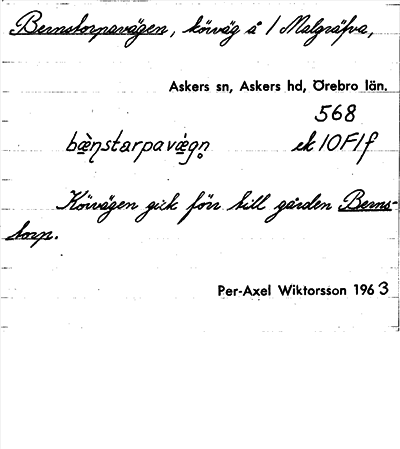 Bernstorpavägen, körväg å 1 Malgräfva,
Askers sn, Askers hd, Örebro län.
568
bæ̀ṇstarpavæ̀gn̥ ek 10F1f
Körvägen gick förr till gården Berns-
torp.
Per-Axel Wiktorsson 1963